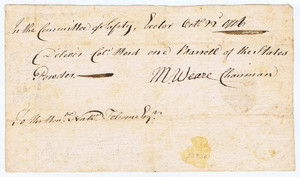 In the Committee of Safety, Exeter Octr. 22d 1776
Deliver Colo. Hunt one Barrell of the States
Powder.
M Weare Chairman
To the Honble. Nathl. Folsom Esqr.